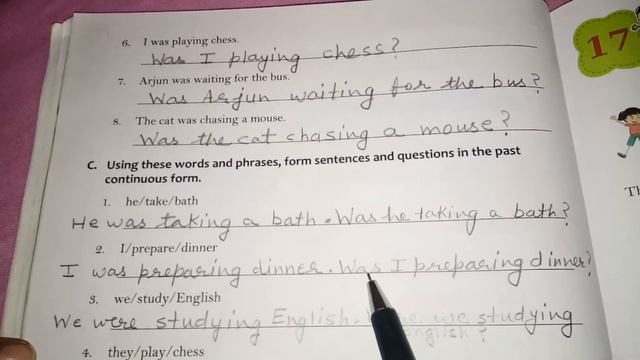 6. I was playing chess.
Was I playing chess?
7. Arjun was waiting for the bus.
Was Arjun waiting for the bus?
8. The cat was chasing a mouse.
Was the cat chasing a mouse?
C. Using these words and phrases, form sentences and questions in the past
continuous form.
1. he/take/bath
He was taking a bath. Was he taking a bath?
2. I/prepare/dinner
I was preparing dinner. Was I preparing dinner?
3. we/study/English
We were studying English. we studying
English?
4. they/play/chess
17